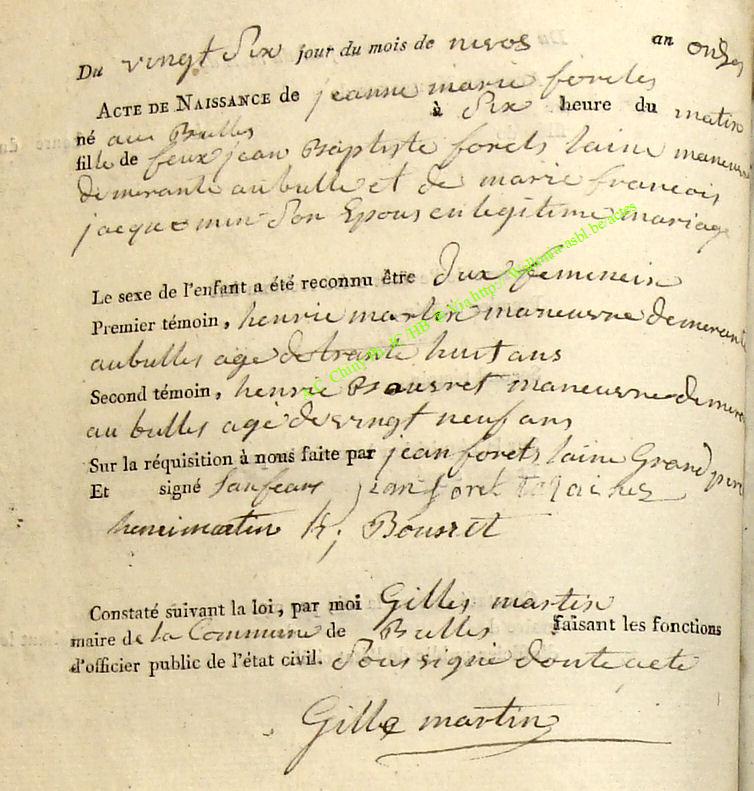 Du vingt Six jour du mois de nivos an onze
ACTE DE NAISSANCE de jeanne marie forets
né aux Bulles à Six heure du matin
fille de feux jean Baptiste forets laine maneuvre
demerante aubulle et de marie francois
jacquemin Son Epous en legitime mariage
Le sexe de l'enfant a été reconnu être dux femenein
Premier témoin, henrie martin maneuvre demerante
aubulles age de trante huit ans
Second témoin, henrie Bouvret maneuvre demera
au bulles agé de vingt neuf ans
Sur la réquisition à nous faite par jean forets laine Grand pere
Et signé jean foret
henri martin h; Bouvret
Constaté suivant la loi, par moi Gilles martin
maire de la Commune de Bulles faisant les fonctions
d'officier public de l'état civil. Sous signé donte acte
Gille martin